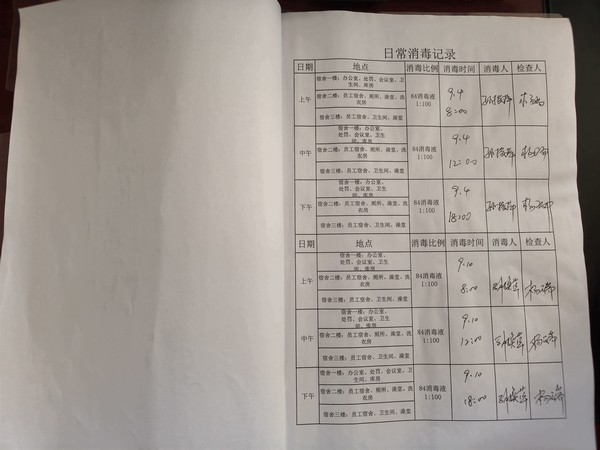 日常消毒记录
日期 地点 消毒比例 消毒时间 消毒人 检查人
上午
宿舍一楼：办公室、处罚、会议室、卫
生间、库房
宿舍二楼：员工宿舍、厕所、澡堂、洗
衣房
宿舍三楼：员工宿舍、卫生间、澡堂
84消毒液
1:100
9.4
8:00
中午
宿舍一楼：办公室、
处罚、会议室、卫生
间、库房
宿舍二楼：员工宿舍、厕所、澡堂、洗
衣房
宿舍三楼：员工宿舍、卫生间、澡堂
84消毒液
1:100
9.4
12:00
下午
宿舍一楼：办公室、
处罚、会议室、卫生
间、库房
宿舍二楼：员工宿舍、厕所、澡堂、洗
衣房
宿舍三楼：员工宿舍、卫生间、澡堂
84消毒液
1:100
9.4
18:00
日期 地点 消毒比例 消毒时间 消毒人 检查人
上午
宿舍一楼：办公室、
处罚、会议室、卫生
间、库房
宿舍二楼：员工宿舍、厕所、澡堂、洗
衣房
宿舍三楼：员工宿舍、卫生间、澡堂
84消毒液
1:100
9.10
8:00
中午
宿舍一楼：办公室、
处罚、会议室、卫生
间、库房
宿舍二楼：员工宿舍、厕所、澡堂、洗
衣房
宿舍三楼：员工宿舍、卫生间、澡堂
84消毒液
1:100
9.10
12:00
下午
宿舍一楼：办公室、处罚、会议室、卫
生间、库房
宿舍二楼：员工宿舍、厕所、澡堂、洗
衣房
宿舍三楼：员工宿舍、卫生间、澡堂
84消毒液
1:100
9.10
18:00